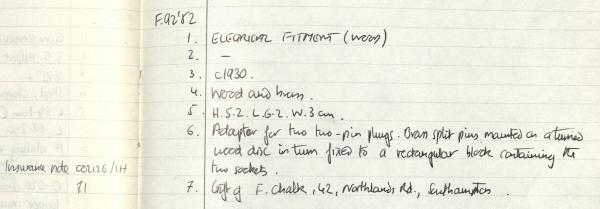 F.92'82
1. ELECRICAL FITMENT (WOOD)
2. —
3. c1930.
4. Wood and brass.
5. H.5.2. L.6.2. W.3cm.
6. Adaptor for two two-pin plugs. Brass split pins mounted on a turned
wood disc in turn fixed to a rectangular block containing the
two sockets.
Insurance note CO2126/1H
£1
7. Gift of F. Chalk, 42, Northlands Rd., Southampton.